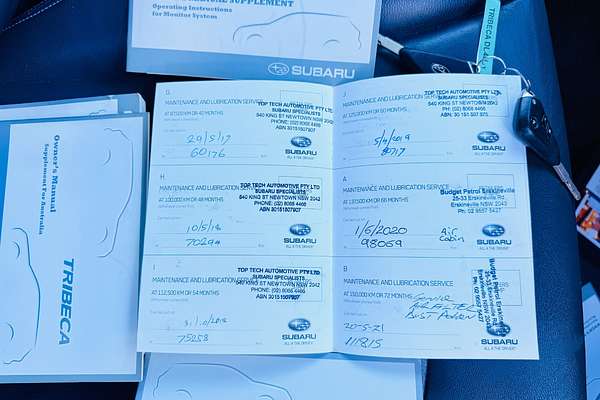 Operating Instructions
for Monitor System
SUBARU
TRIBECA
Owner's Manual
Supplement for Australia
TRIBECA
G.
MAINTENANCE AND LUBRICATION SERVICE
TOP TECH AUTOMOTIVE PTY LTD
SUBARU SPECIALISTS
640 KING ST NEWTOWN NSW 2042
PHONE: (02) 8068 4466
ABN 30151507907
29/5/17
60176
SUBARU
ALL 4 THE DRIVER
H
MAINTENANCE AND LUBRICATION SERVICE
AT 100,000 KM OR 48 MONTHS
TOP TECH AUTOMOTIVE PTY LTD
SUBARU SPECIALISTS
640 KING ST NEWTOWN NSW 2042
PHONE: (02) 8068 4466
ABN 30151507907
70294
SUBARU
ALL 4 THE DRIVER
I
MAINTENANCE AND LUBRICATION
AT 112,500 KM OR 54 MONTHS
TOP TECH AUTOMOTIVE PTY LTD
SUBARU SPECIALISTS
640 KING ST NEWTOWN NSW 2042
PHONE: (02) 8068 4466
ABN 30151507907
75258
SUBARU
ALL 4 THE DRIVER
J
MAINTENANCE AND LUBRICATION SERVICE
AT 125,000 KM OR 60 MONTHS
TOP TECH AUTOMOTIVE PTY LTD
SUBARU SPECIALISTS
640 KING ST NEWTOWN NSW 2042
PHONE: (02) 8068 4466
5/4/2019
SUBARU
ALL 4 THE DRIVER
A
MAINTENANCE AND LUBRICATION SERVICE
AT 137,500 KM OR 66 MONTHS
Budget Petrol Erskineville
25-33 Erskineville Rd
Erskineville NSW 2043
Ph: 02 8657 5427
1/6/2020
98069
Air
Cabin
SUBARU
ALL 4 THE DRIVER
B
MAINTENANCE AND LUBRICATION SERVICE
AT 150,000 KM OR 72 MONTHS
Budget Petrol Erskineville
25-33 Erskineville Rd
Erskineville NSW 2043
Ph: 02 8657 5427
Dust Pollen
20-5-21
111815
SUBARU
ALL 4 THE DRIVER